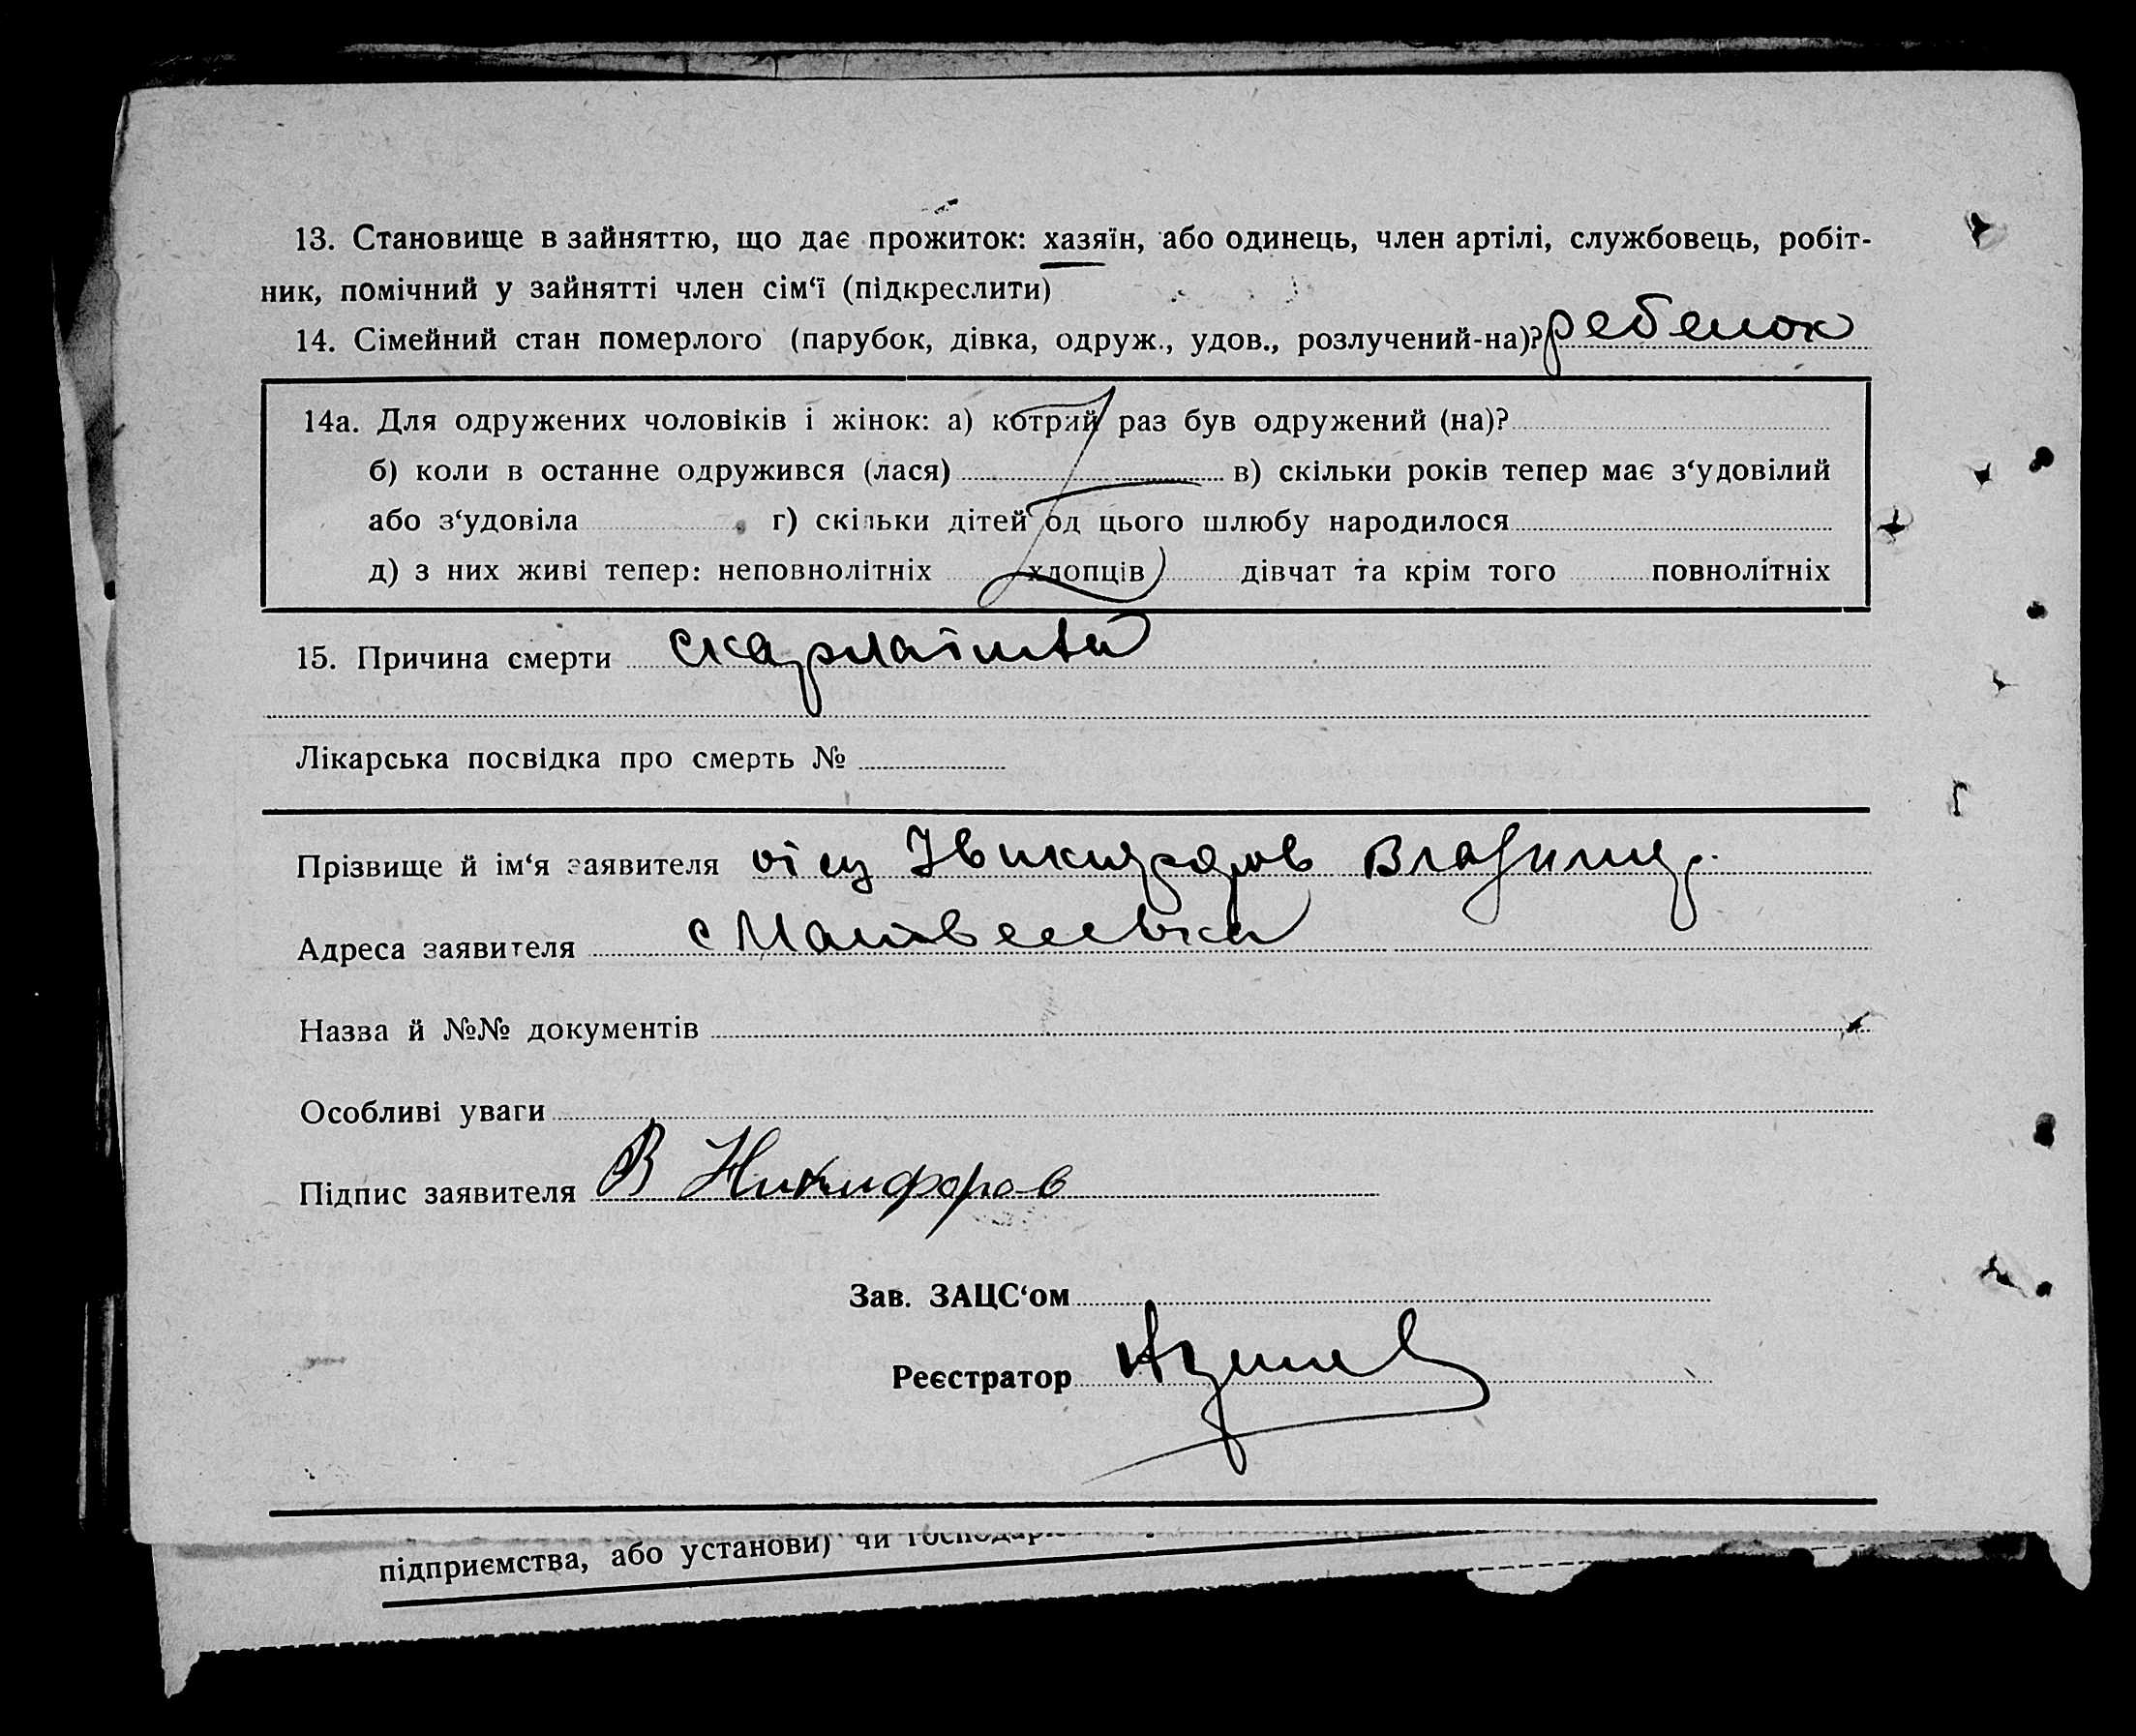 13. Становище в зайняттю, що дає прожиток: хазяїн, або одинець, член артілі, службовець, робіт-
ник, помічний у зайнятті член сім‘ї (підкреслити)
14. Сімейний стан померлого (парубок, дівка, одруж., удов., розлучений-на)? ребенок
14а. Для одружених чоловіків і жінок: а) котрий раз був одружений (на)?
б) коли в останнє одружився (лася) в) скільки років тепер має з‘удовілий
або з‘удовіла г) скільки дітей од цього шлюбу народилося
д) з них живі тепер: неповнолітніх хлопців дівчат та крім того повнолітніх
15. Причина смерти скарлатина
Лікарська посвідка про смерть №
Прізвище й ім‘я заявителя отец Никифоров Владимир.
Адреса заявителя с Матвеевка
Назва й №№ документів
Особливі уваги
Підпис заявителя В Никифоров
Зав. ЗАЦС‘ом
Реєстратор
підприємства, або установи) чи